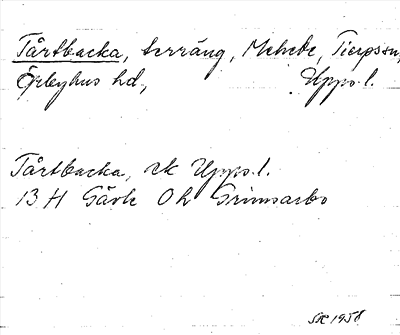 Tårtbacka, terräng, Mehede, Tierpssn,
Örbyhus hd, Upps. l.
Tårtbacka, ek Upps. l.
13 H Gävle 0 h Grinnsarbo
1958